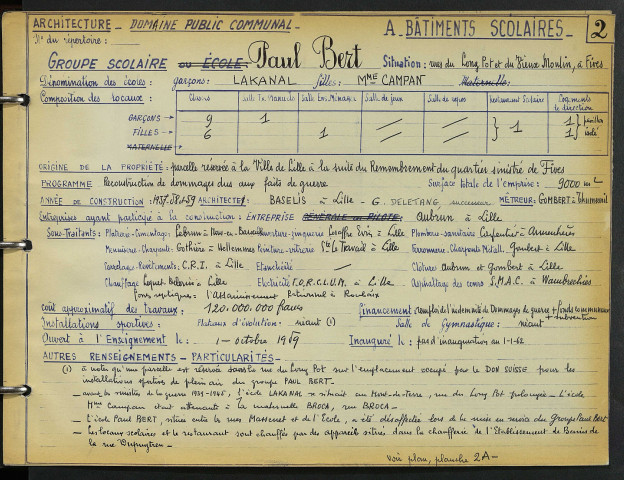 ARCHITECTURE - DOMAINE PUBLIC COMMUNAL - A - BÂTIMENTS SCOLAIRES - 2
N° du répertoire :
GROUPE SCOLAIRE ou ÉCOLE : Paul Bert Situation : rues du Long Pot et du Vieux Moulin, à Fives
Dénomination des écoles : garçons : LAKANAL filles : Mme CAMPAN Maternelle :
Composition des locaux : Classes Salle Tx Manuels Salle Ens. Ménager Salle de jeux Salle de repos Restaurant Scolaire Logements de direction
GARÇONS → 9 1 // // 1 1 pavillon
FILLES → 6 1 // // 1 isolé
MATERNELLE →
ORIGINE DE LA PROPRIÉTÉ : parcelle réservée à la Ville de Lille à la suite du Remembrement du quartier sinistré de Fives
PROGRAMME Reconstruction de dommages dus aux faits de guerre Surface totale de l'emprise : 9000 m2
ANNÉE DE CONSTRUCTION : 1957-58 &59 ARCHITECTE : BASELIS à Lille - G. DELETANG, successeur MÉTREUR : GOMBERT à
Entreprises ayant participé à la construction : ENTREPRISE GÉNÉRALE ou PILOTE : Aubrun à Lille
Sous-Traitants : Plâtrerie - Cimentage : Lebrun à Couverture - zinguerie à Lille Plomberie - sanitaire Carpentier à Armentières
Menuiserie - Charpente - Gothière à Hellemmes Peinture - vitrerie Sté Le Travail à Lille Ferronnerie - Charpente Métall. Gombert à Lille
Carrelage - Revêtements : C.R.I. à Lille Etanchéité // Clôtures Aubrun et Gombert à Lille
Chauffage à Lille Electricité F.O.R.C.L.U.M. à Lille Asphaltage des cours S.M.A.C. à Wambrechies
fosses septiques : l'Assainissement Rationnel à Roubaix
coût approximatif des travaux : 120.000.000 francs Financement remploi de l'indemnité de Dommages de guerre + fonds communaux + subvention
Installations sportives : Plateaux d'évolution : néant (1) Salle de Gymnastique : néant
Ouvert à l'Enseignement le : 1er octobre 1959 Inauguré le : pas d'inauguration au 1-1-62
AUTRES RENSEIGNEMENTS - PARTICULARITÉS -
(1) à noter qu'une parcelle est réservée dans la rue du Long Pot sur l'emplacement occupé par le DON SUISSE pour les
installations sportives de plein air du groupe PAUL BERT -
- avant les sinistres de la guerre 1939-1945, l'école LAKANAL se situait au Mont-de-terre, rue du Long Pot prolongée - L'école
Mme Campan était attenante à la maternelle BROCA, rue BROCA -
- L'école Paul BERT, située entre la rue Massenet et de l'École, a été désaffectée lors de la mise en service du Groupe Paul Bert
- Les locaux scolaires et le restaurant sont chauffés par des appareils situés dans la chaufferie de l'Établissement de Bains de
la rue Dupuytren -
Voir plan, planche 2A -